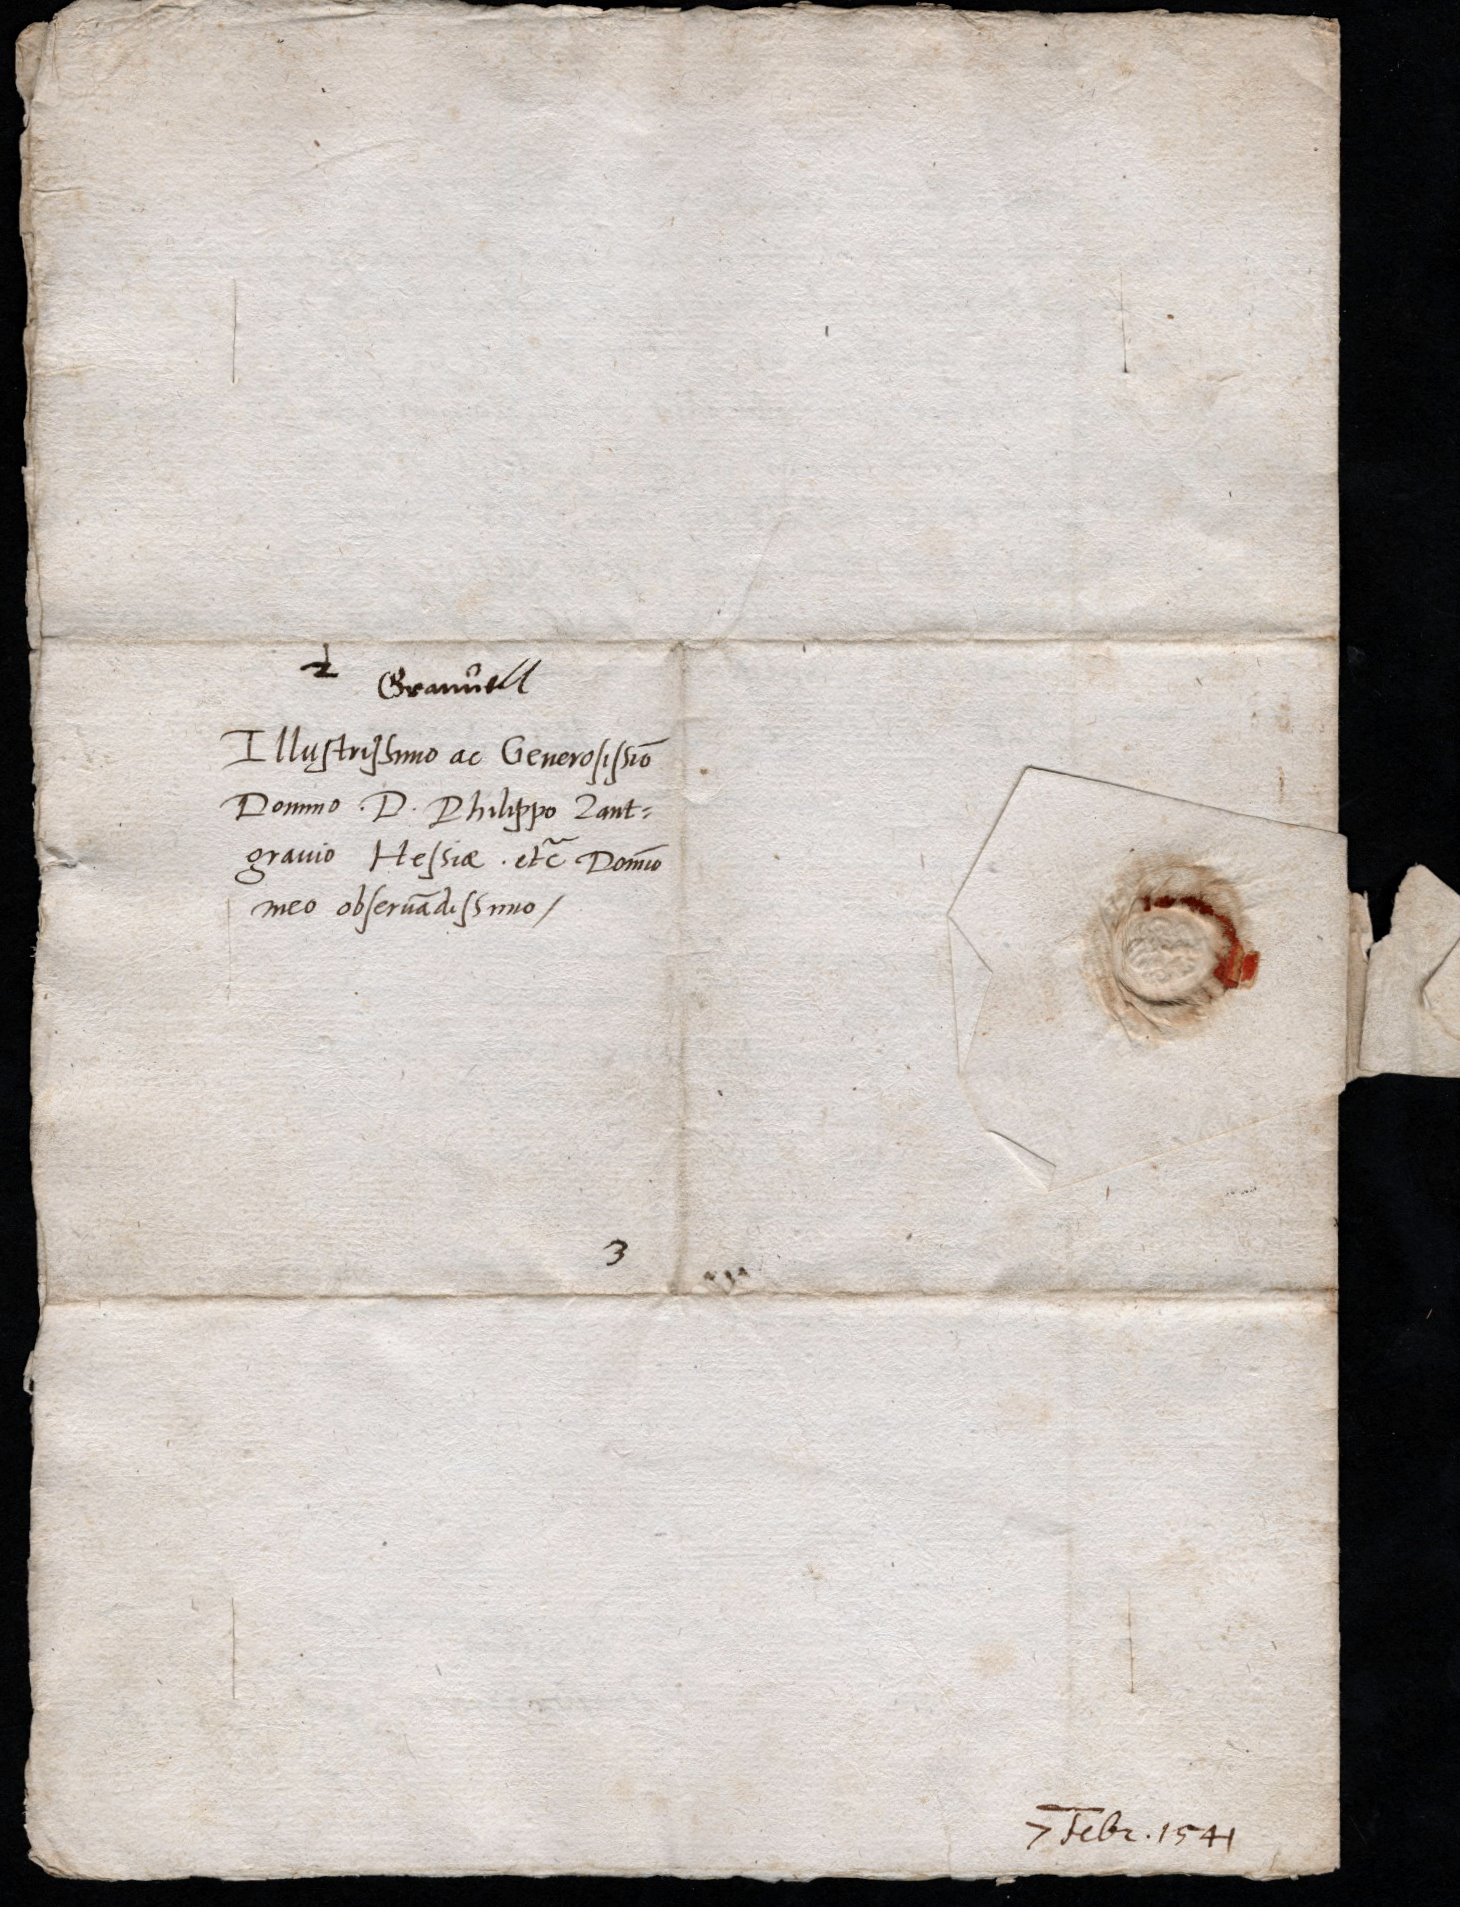 Granuell
Illustrissimo ac Generosissiō
Domino . D . Philippo Lant=
grauio Hessiæ . etc̃ Domīo
meo obseruādissimo /
3
7 Febr. 1541